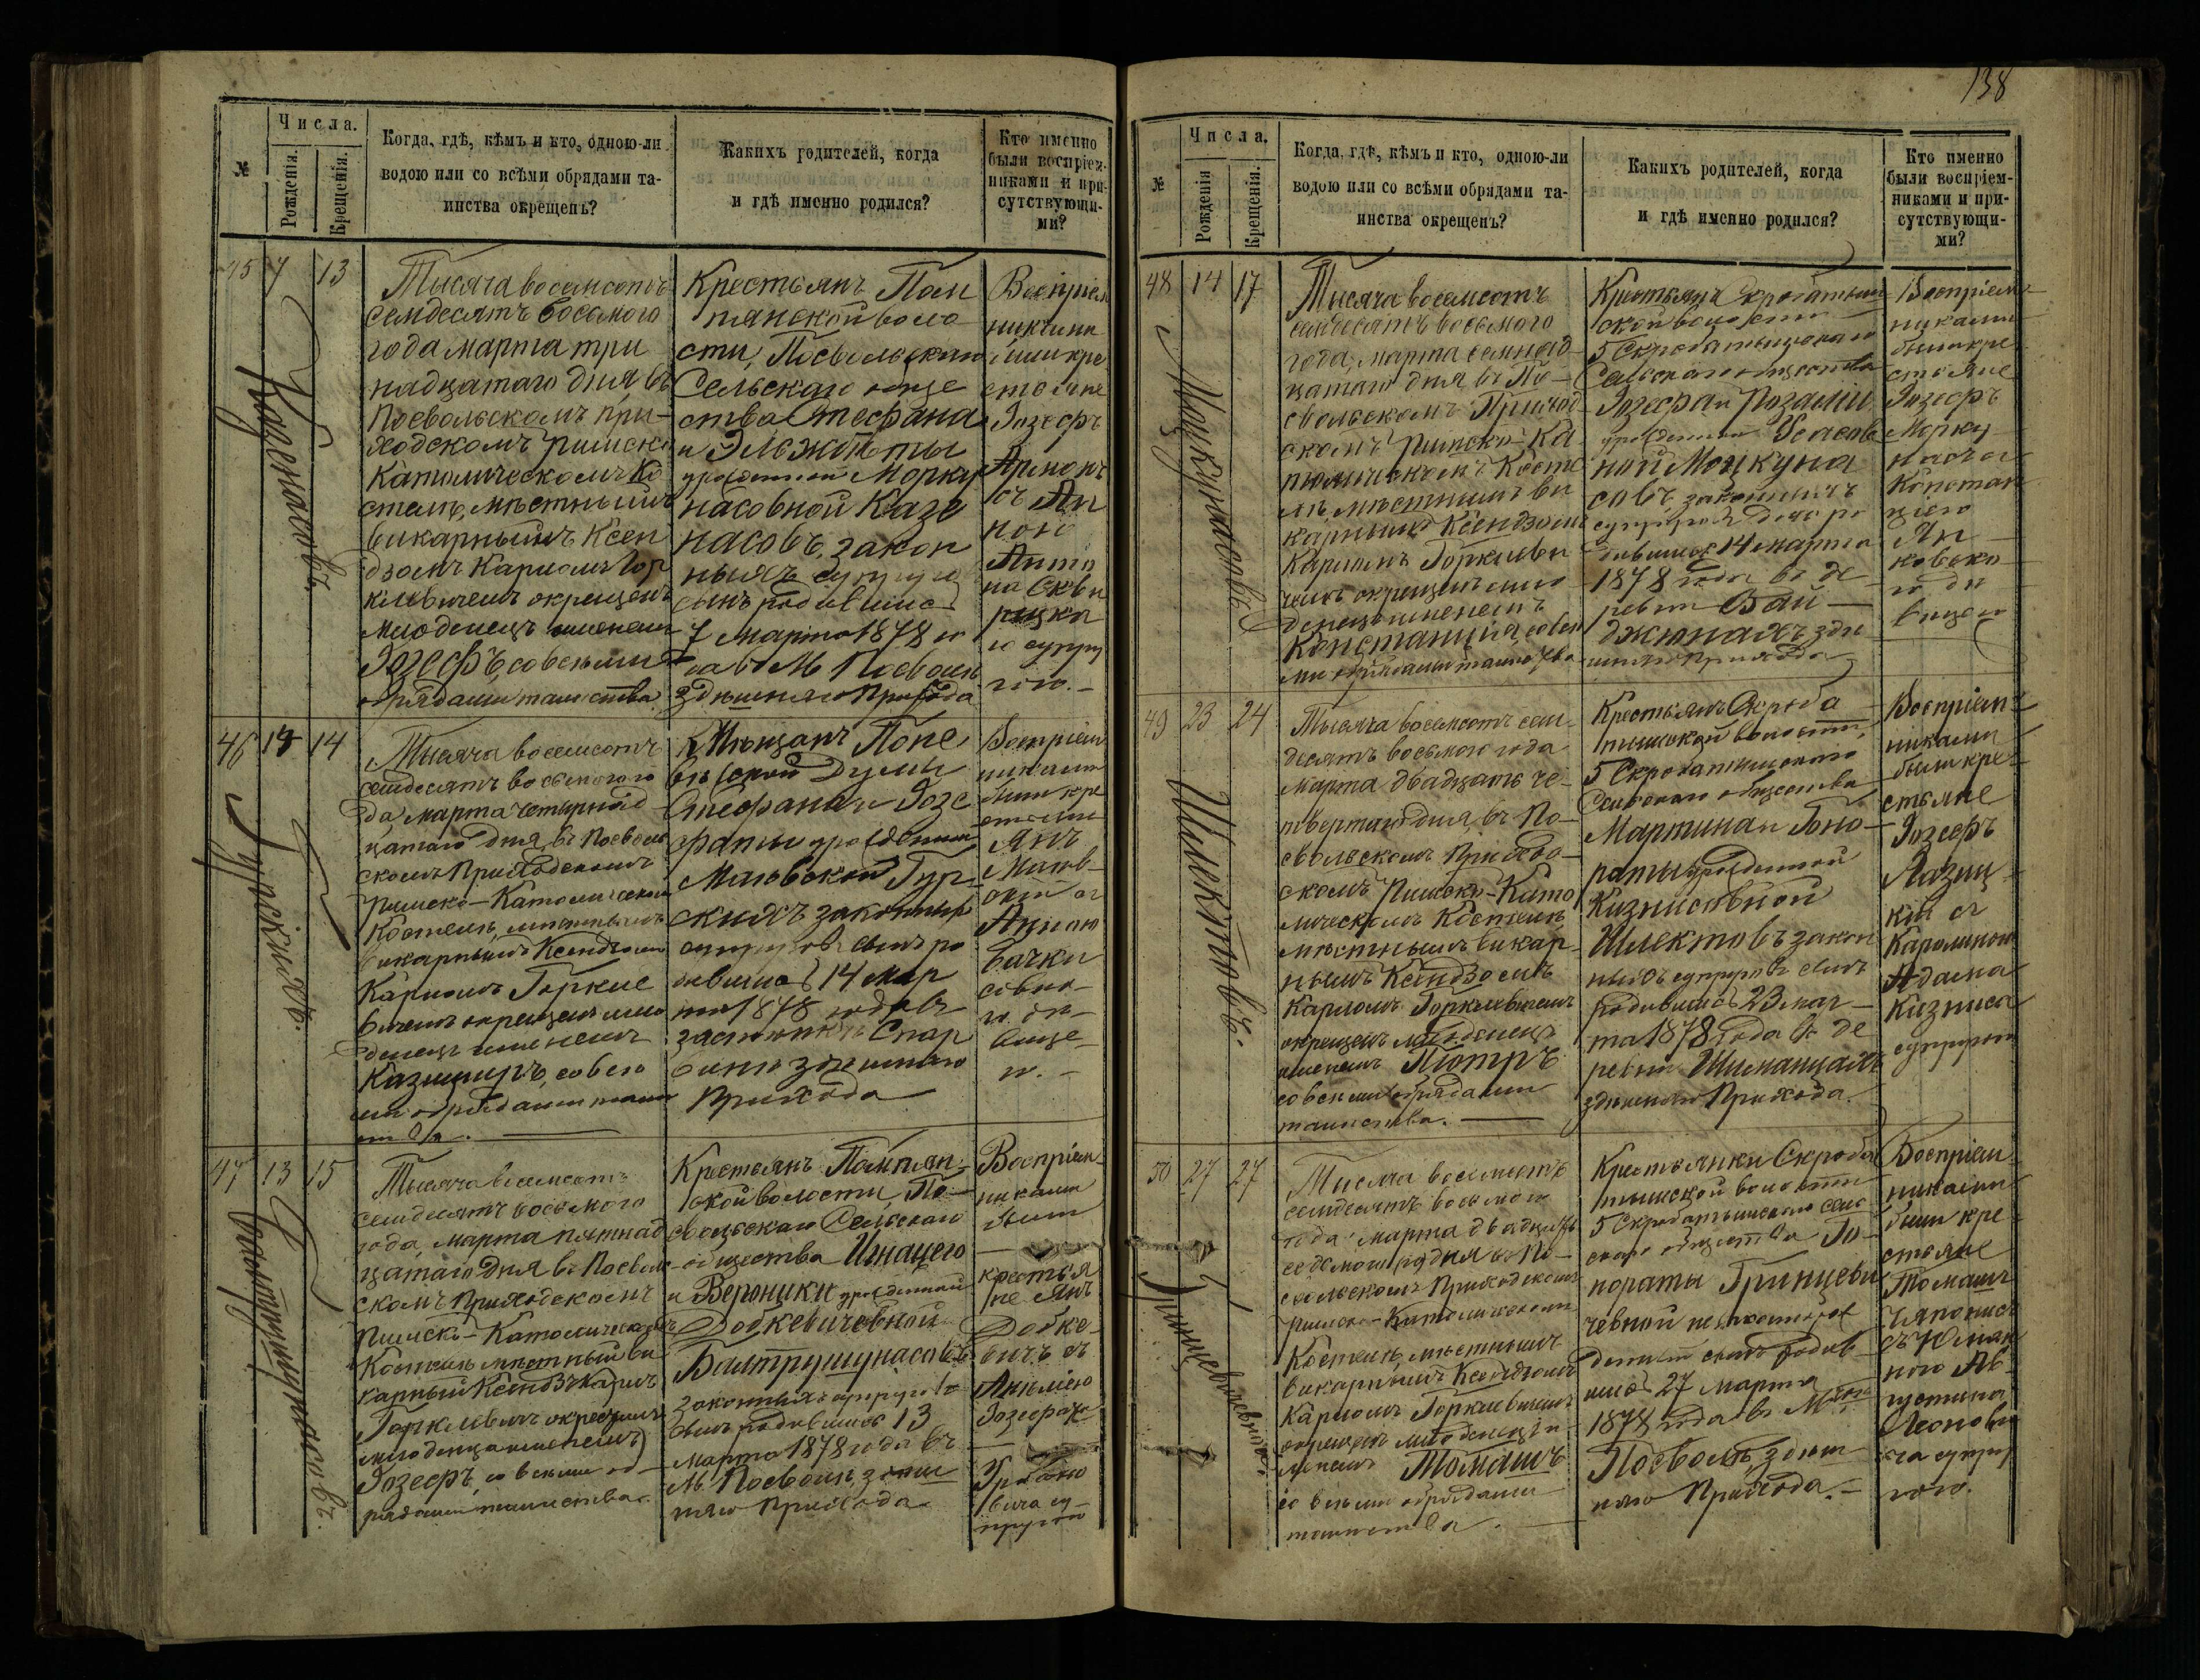 138
№
Числа.
Рожденія.
Крещенія.
Когда, гдѣ, кѣмъ и кто, одною-ли
водою или со всѣми обрядами та-
инства окрещенъ?
Какихъ родителей, когда
и гдѣ именно родился?
Кто именно
были воспріем-
никами и при-
сутствующи-
ми?
45 7 13
Казенасовъ
Тысяча восемсотъ
семдесятъ восьмого
года марта три
надцатаго дня, въ
Посвольскомъ при-
ходскомъ Римско
Католическомъ Ко
стелѣ, мѣстнымъ
викарнымъ Ксен
дзомъ Карломъ Гор
кевичемъ окрещенъ
младенецъ именемъ
Іозефъ, со всѣми
обрядами таинства.
Крестьянъ Пом
пянской воло
сти, Посвольскаго
Сельскаго обще
ства Стефана
и Эльжбеты
урожденной Морку
насовной Казе
насовъ, закон
ныхъ супруго
сынъ родившiйся
7 марта 1878 го
да въ М. Посволѣ
здѣшняго Прихода
Воспріем
никами
были кре
стьяне
Іозефъ
съ Ан
ною
46 14 14
Гурскихъ.
Тысяча восемсотъ
семдесятъ восьмого го
да, марта четырнад
цатаго дня, въ Посволь
скомъ Приходскомъ
Римско-Католическомъ
Костелѣ, мѣстнымъ
викарнымъ Ксендзомъ
Карломъ Горкие
вичемъ окрещенъ мла
денецъ именемъ
Казимиръ, со всѣ
ми обрядами таин
ства.
Мѣщанъ Поне
вѣжской Думы
Стефана и Іозе
фаты урожденной
Маювской Гур
скихъ законныхъ
супруговъ сынъ ро
дившiйся 14 мар
та 1878 года въ
застѣнкѣ
здѣшняго
Прихода
Воспріем
никами
были кре
стьяне
Янъ
съ
Анною
47 13 15
Балтрушунасовъ.
Тысяча восемсотъ
семдесятъ восьмого
года, марта пятнад
цатаго дня въ Посволь
скомъ Приходскомъ
Римско-Католическомъ
Костелѣ мѣстный ви
карный Ксендзъ Карлъ
Горкевичъ окрестилъ
младенца именемъ
Іозефъ, со всѣми об-
рядами таинства.
Крестьянъ Помпян-
ской волости, По-
свольскаго Сельскаго
общества Игнацего
и Вероники урожденной
Добкевичевной
Балтрушунасовъ
законныхъ супруговъ
сынъ родившiйся 13
марта 1878 года въ
М. Посволѣ, здѣш
няго Прихода.
Воспріем-
никами
были
крестья
не Янъ
Добке-
вичъ съ
супругою
№
Числа.
Рожденія
Крещенія.
Когда, гдѣ, кѣмъ и кто, одною-ли
водою или со всѣми обрядами та-
инства окрещенъ?
Какихъ родителей, когда
и гдѣ именно родился?
Кто именно
были воспріем-
никами и при-
сутствующи-
ми?
48 14 17
Моцкунасовъ
Тысяча восемсотъ
семдесятъ восьмого
года, марта семнад-
цатаго дня въ По-
свольскомъ Приход-
скомъ Римско-Ка
толическомъ Косте
лѣ, мѣстнымъ ви
карнымъ Ксендзомъ
Карломъ Горкиеви
чемъ окрещенъ мла
денецъ именемъ
Констанція со всѣ
ми обрядами таинства
Крестьянъ
ской волости
5 Скробатышскаго
Сельскаго общества
Іозефа и Розаліи
урожденной
ной Моцкуна
совъ, законныхъ
супруговъ дочь ро
дившаяся 14 марта
1878 года въ де
ревни Вай-
джюнахъ здѣ
шняго Прихода
Воспріем-
никами
были кре
стьяне
Іозефъ
Морку
насъ съ
Констан
цiею
Ян
ковско
ю дѣ
вицею
49 23 24
Шлектовъ.
Тысяча восемсотъ сем-
десятъ восьмого года
марта двадцать че-
твертаго дня, въ По-
свольскомъ Приход-
скомъ Римско-Като
лическомъ Костелѣ
мѣстнымъ викар-
нымъ Ксендзомъ
Карломъ Горкиевичемъ
окрещенъ младенецъ
именемъ Піотръ
со всѣми обрядами
таинства.
Крестьянъ Скроба
тышской волости,
5 Скробатышскаго
Сельскаго общества
Мартина и Гоно-
раты урожденной
Кизнисовной
Шлектовъ закон
ныхъ супруговъ сынъ
родившiйся 23 мар-
та 1878 года въ де
ревни Шиманцахъ
здѣшняго Прихода.
Воспріем-
никами
были кре-
стьяне
Іозефъ
Лазиц-
кiй съ
Каролиною
Адама
Кизниса
супругою
50 27 27
Гринцевичевной.
Тысяча восемсотъ
семдесятъ восьмого
года марта двадцать
седьмого дня въ По-
свольскомъ Приходскомъ
Римско-Католическомъ
Костелѣ, мѣстнымъ
викарнымъ Ксендзомъ
Карломъ Горкиевичемъ
окрещенъ младенецъ и
менемъ Томашъ
со всѣми обрядами
таинства.
Крестьянки Скроба
тышской волости
5 Скробатышскаго сель
скаго общества Го-
нораты Гринцеви
чевной
сынъ родив
шiйся 27 марта
1878 года въ Мѣст.
Посволѣ, здѣш
няго Прихода.
Воспріем-
никами
были кре
стьяне
Томашъ
съ Юлiан
ною Ав
густина
Леонови
ча супру
гою.